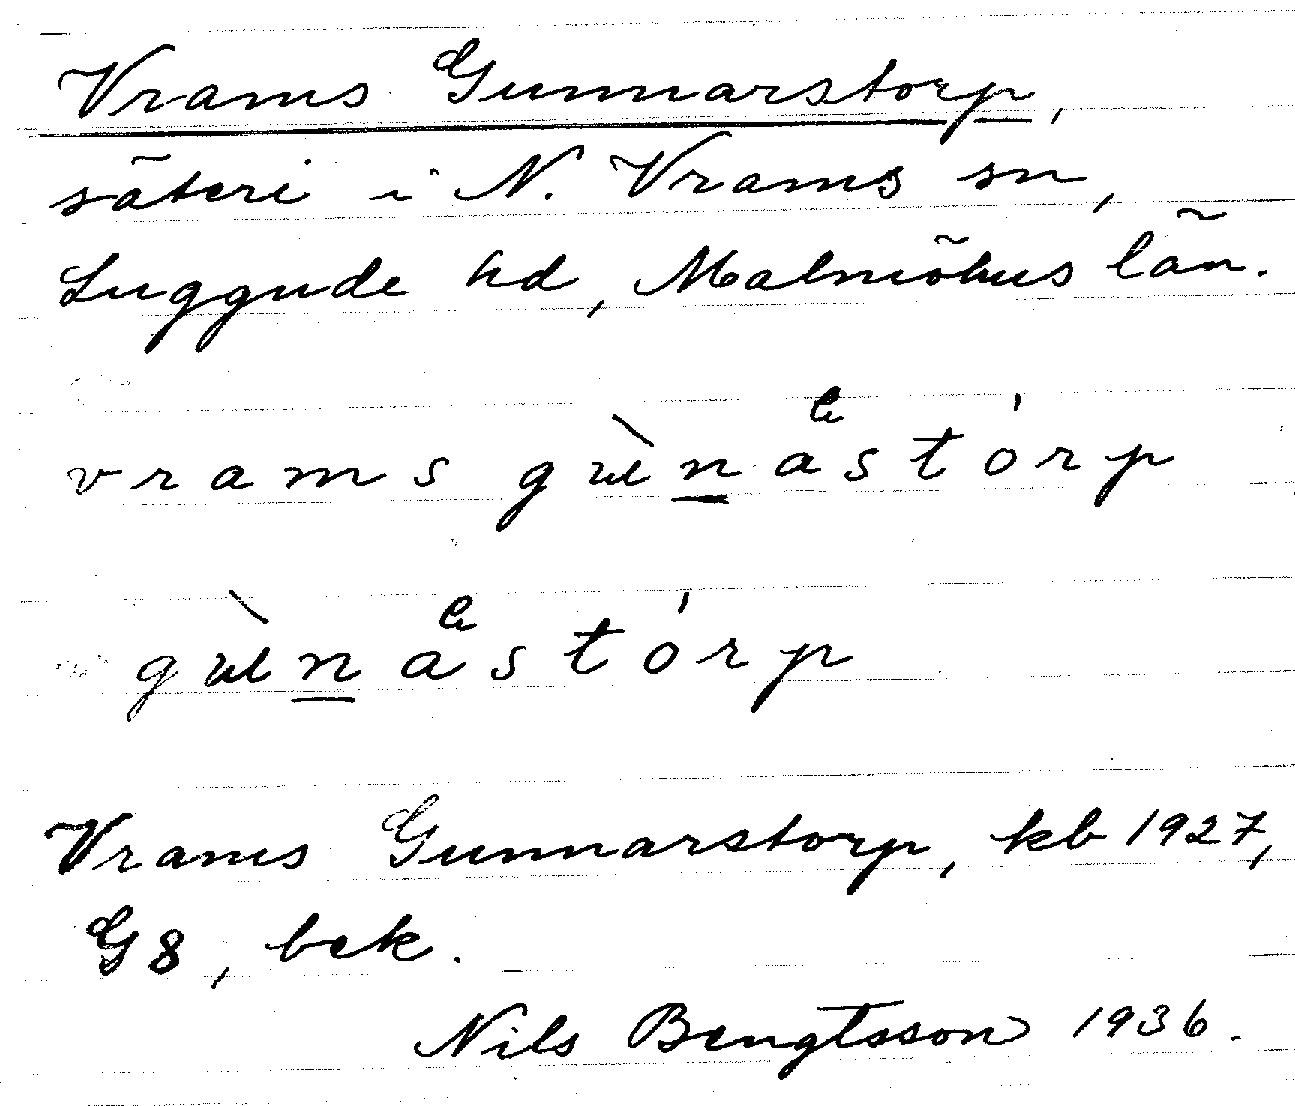 Vrams Gunnarstorp,
säteri i N. Vrams sn,
Luggude hd, Malmöhus län.
vrams gùnastórp
gùnastórp
Vrams Gunnarstorp, kb 1927,
G8, bek.
Nils Bengtsson 1936.